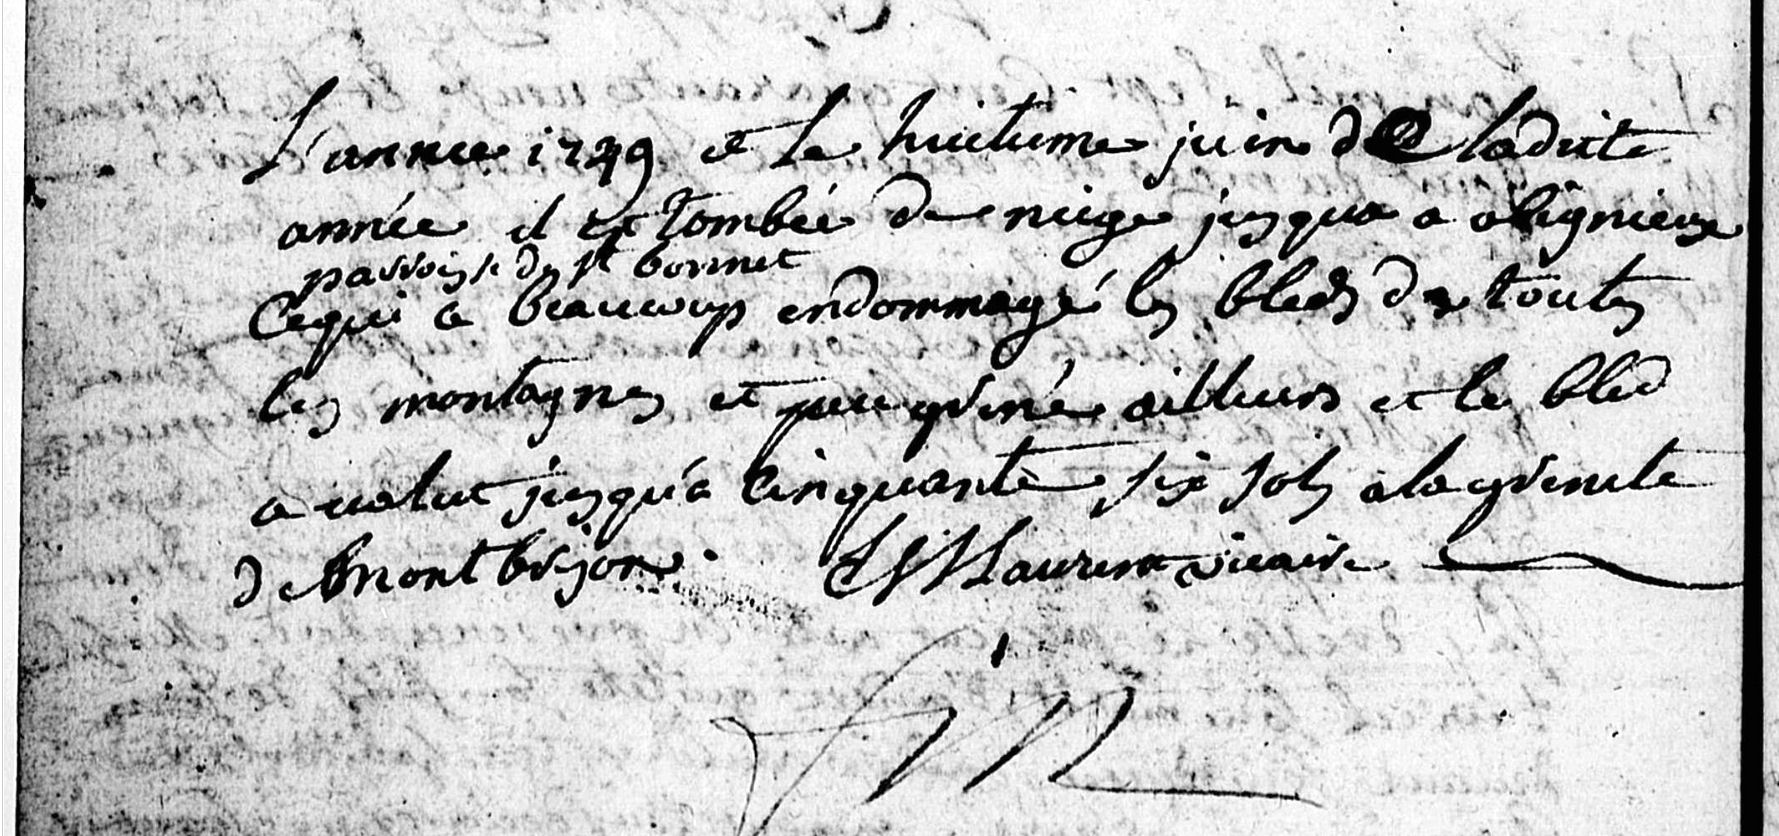 L'année 1749 et le huitieme juin de ladite
année il est tombée de niege jusqua a olignieux
parroisse de st bonnet
Cequi a beaucoup endommagé les bleds de toutes
les montagnes et peu grené ailleurs et le bled
a valut jusqu'a cinquante six sols a la grenete
de Montbrison. Laurent vicaire
fin